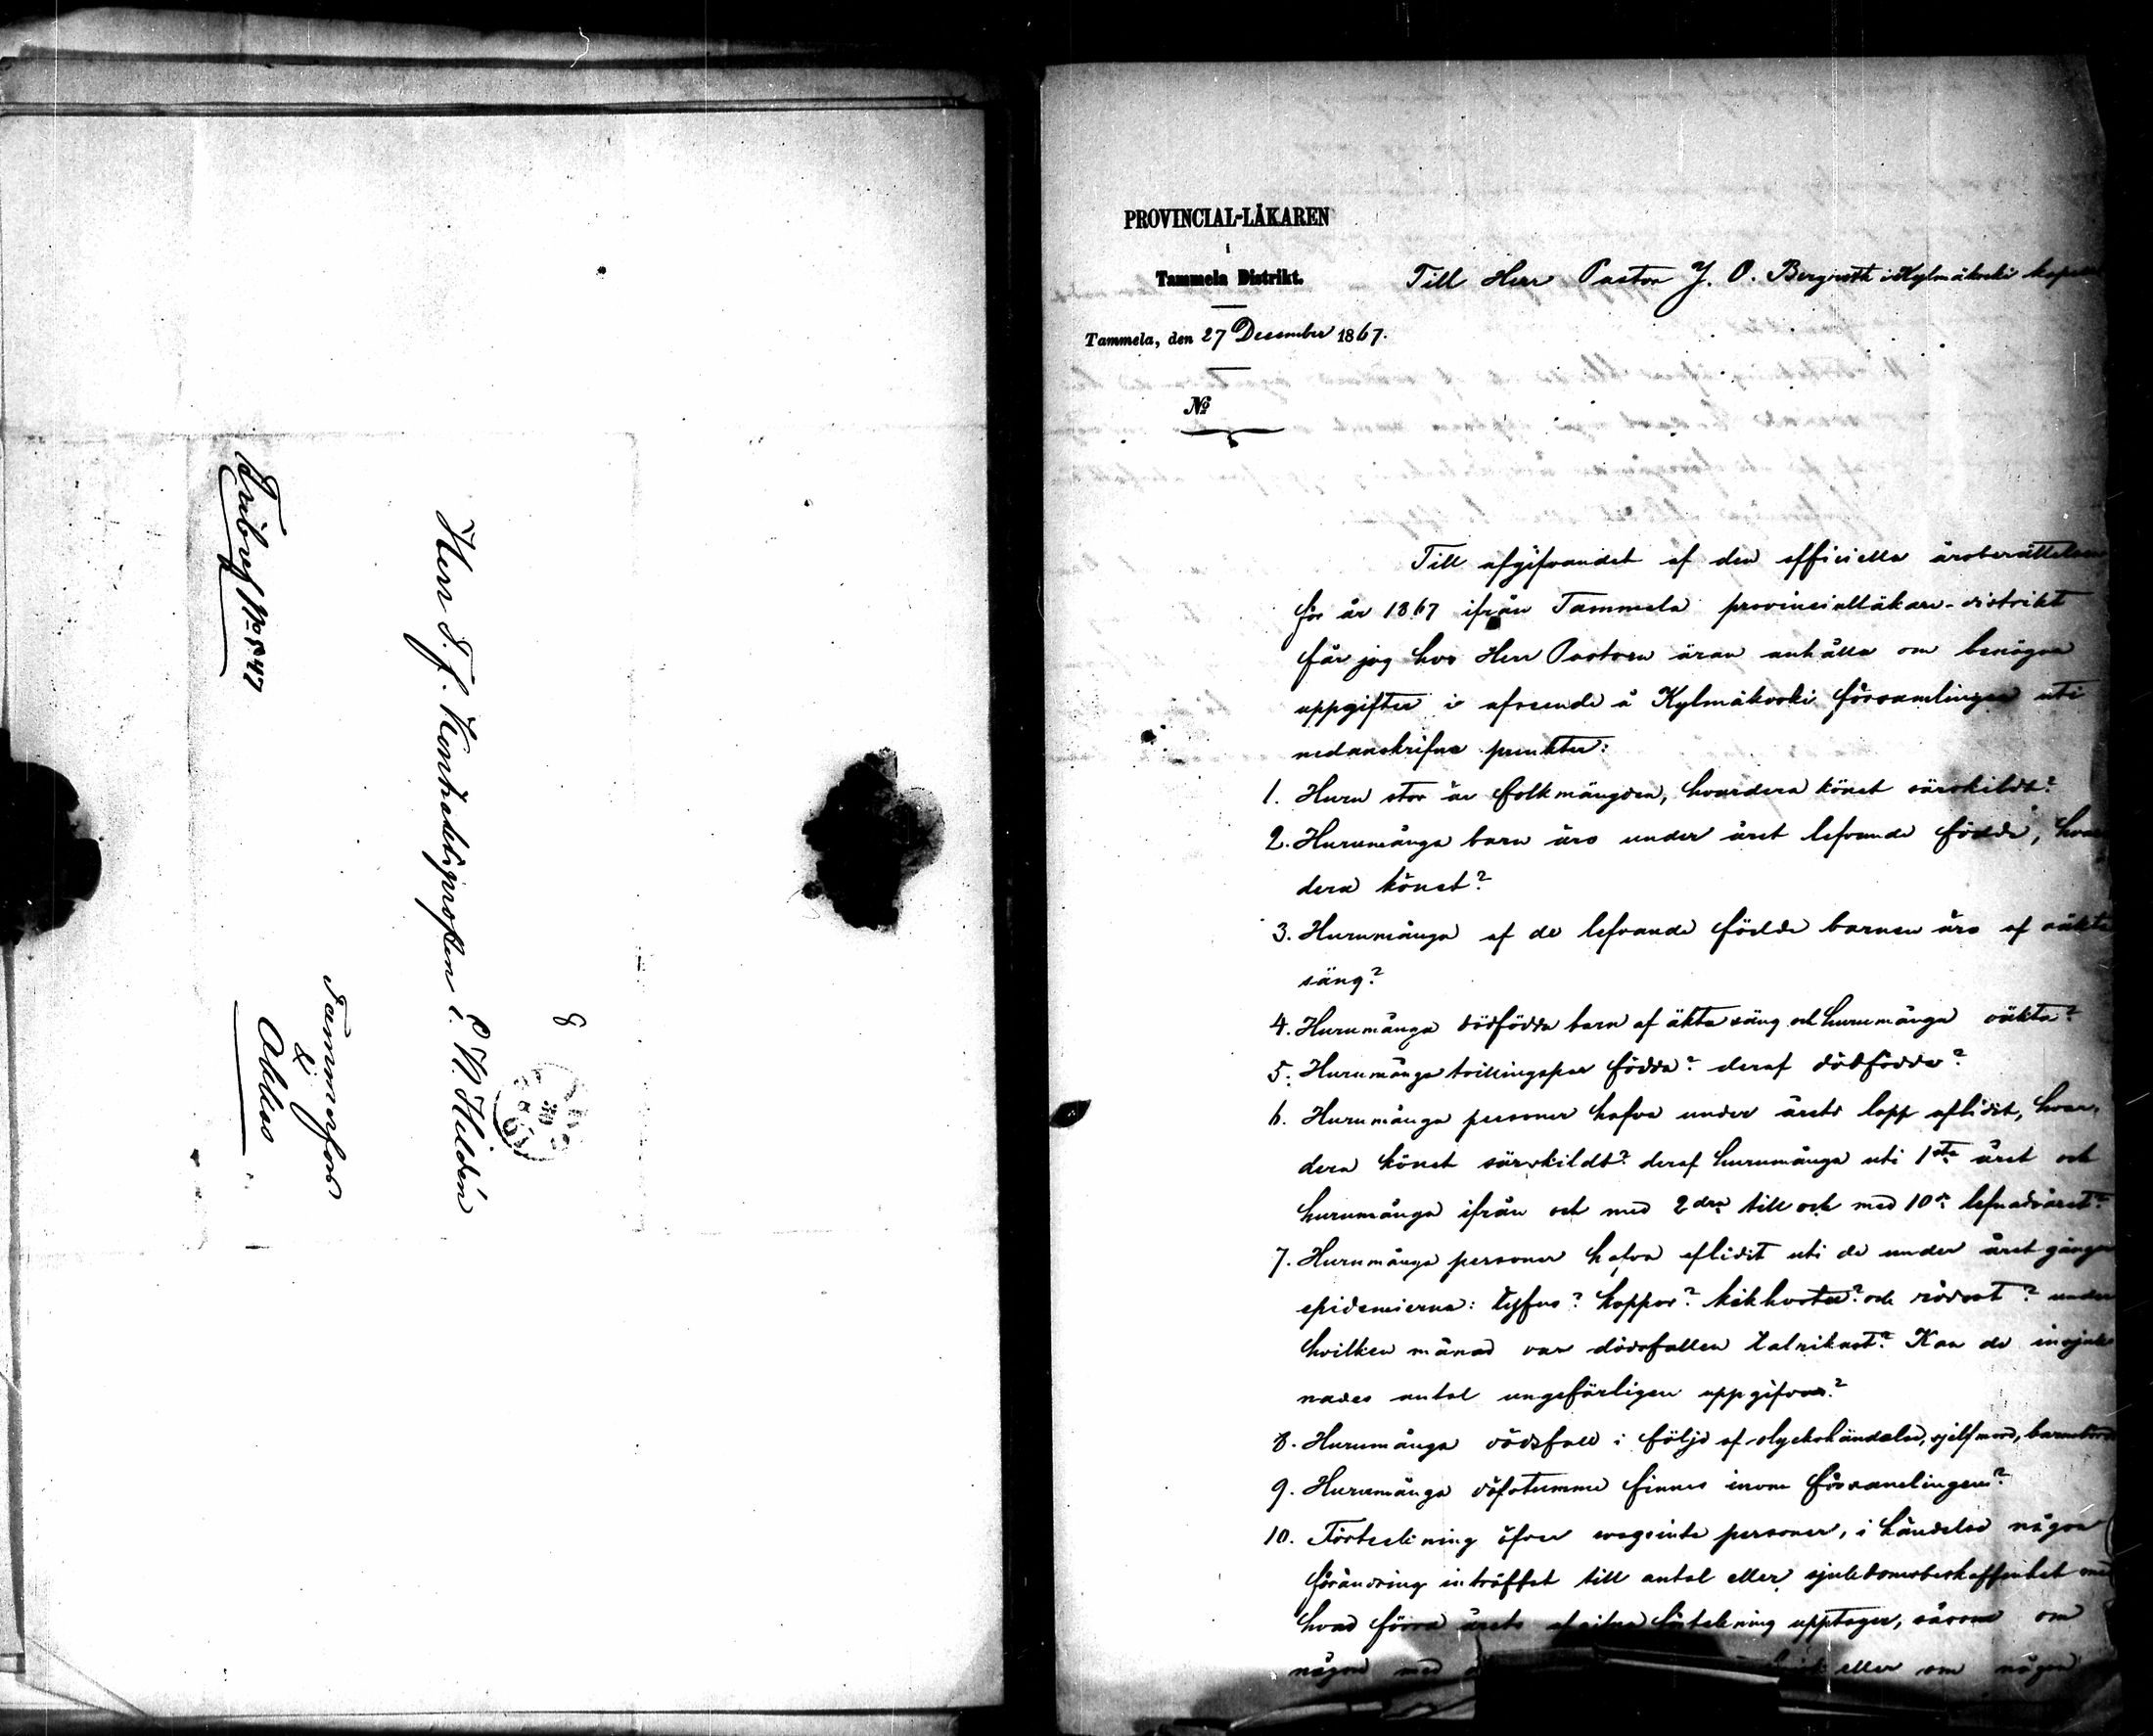 Fribref No 847
Herr T.f. Kontraktsprosten C. N. Hildén
Tammerfors
&
Akkas
8
PROVINCIAL-LÄKAREN
i
Tammela Distrikt.
Till Herr Pastor J. O. Bergroth i Kylmäkoski
Tammela, den 27 December 1867.
No
Till afgifvandet af den officiella årsberättelsen
för år 1867 ifrån Tammela provincialläkare-distrikt
får jag hos Herr Pastorn äran anhålla om benägna
uppgifter i afseende å Kylmäkoski församlingen uti
nedanskrifne punkter:
1. Huru stor är folkmängden, hvardera könet särskildt?
2. Huru många barn äro under året lefvande födde, hvar
dera könet?
3. Huru många af de lefvande födde barnen äro af oäkta
säng?
4. Huru många dödfödda barn af äkta säng och huru många oäkta?
5. Huru många tvillingspar födda? deraf dödfödda?
6. Huru många personer hafva under årets lopp aflidit, hvar-
dera könet särskildt? deraf huru många uti 1sta året och
huru många ifrån och med 2dra till och med 10de lefnadsåret?
7. Huru många personer hafva aflidit uti de under året gångna
epidemierna: tyfus? koppor? kikhosta? och rödsot? under
hvilken månad var dödsfallen talrikast? Kan de insjuk
nades antal ungefärligen uppgifvas?
8. Huru många dödsfall i följd af olyckshändelse, sjelfmord,
9. Huru många döfstumme finnes inom församlingen?
10. Förteckning öfver vansinta personer, i händelse någon
förändring inträffat till antal eller sjukdomsbeskaffenhet med
hvad förra årets afgifna förteckning upptager, såsom om
någon med eller om någon